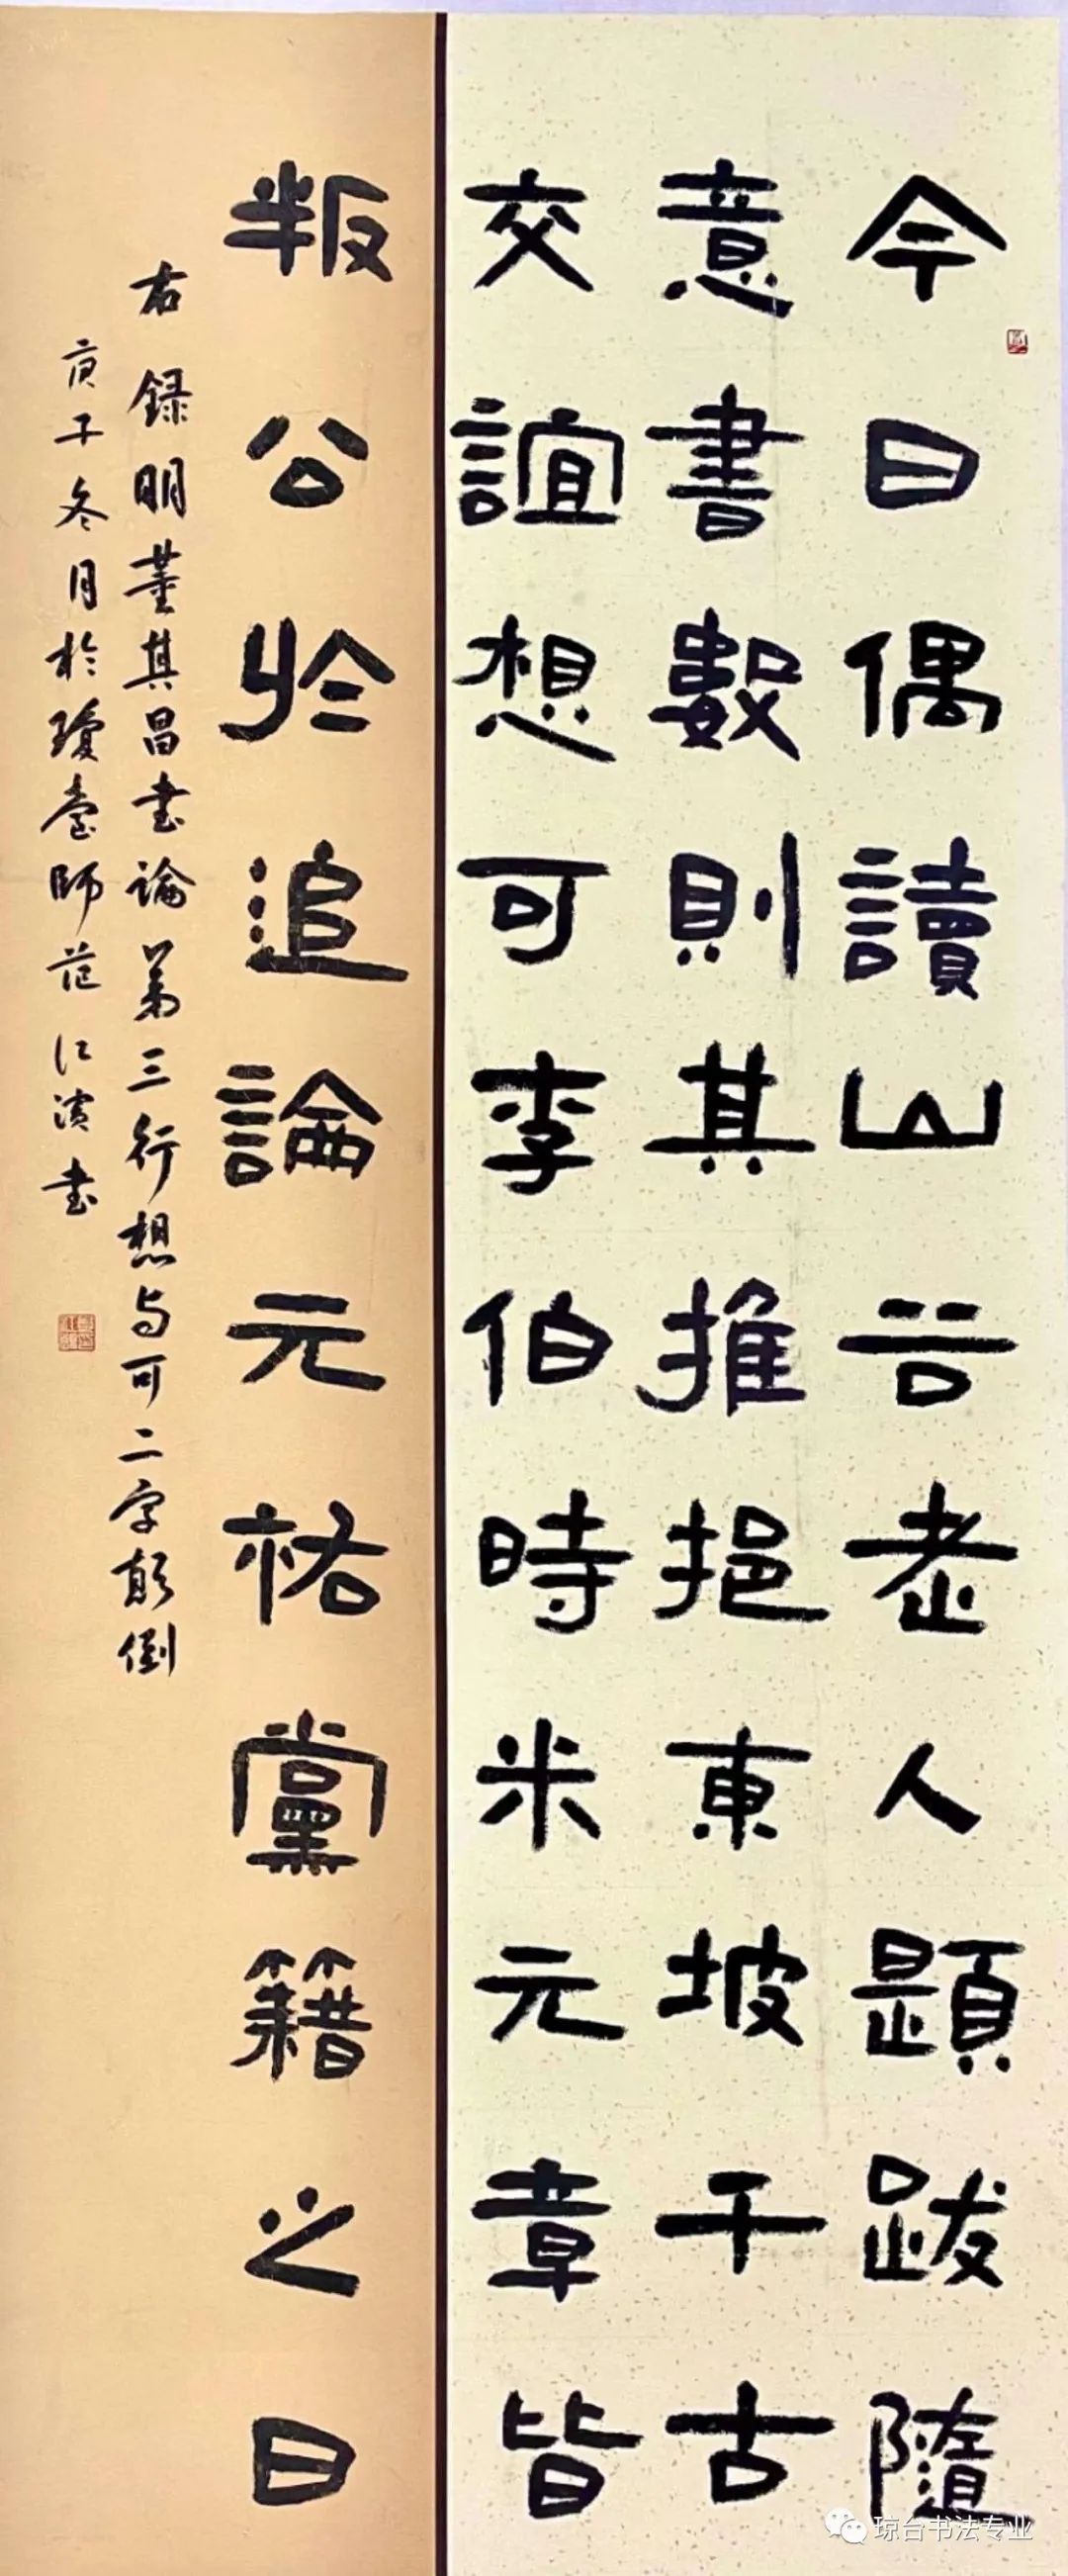 今日偶讀山谷老人題跋隨
意書數則其推挹東坡千古
交誼想可李伯時米元章皆
叛公於追論元祐黨籍之日
右録明董其昌书論第三行想与可二字顛倒
庚子冬月於瓊臺師范江濱书
琼台书法专业